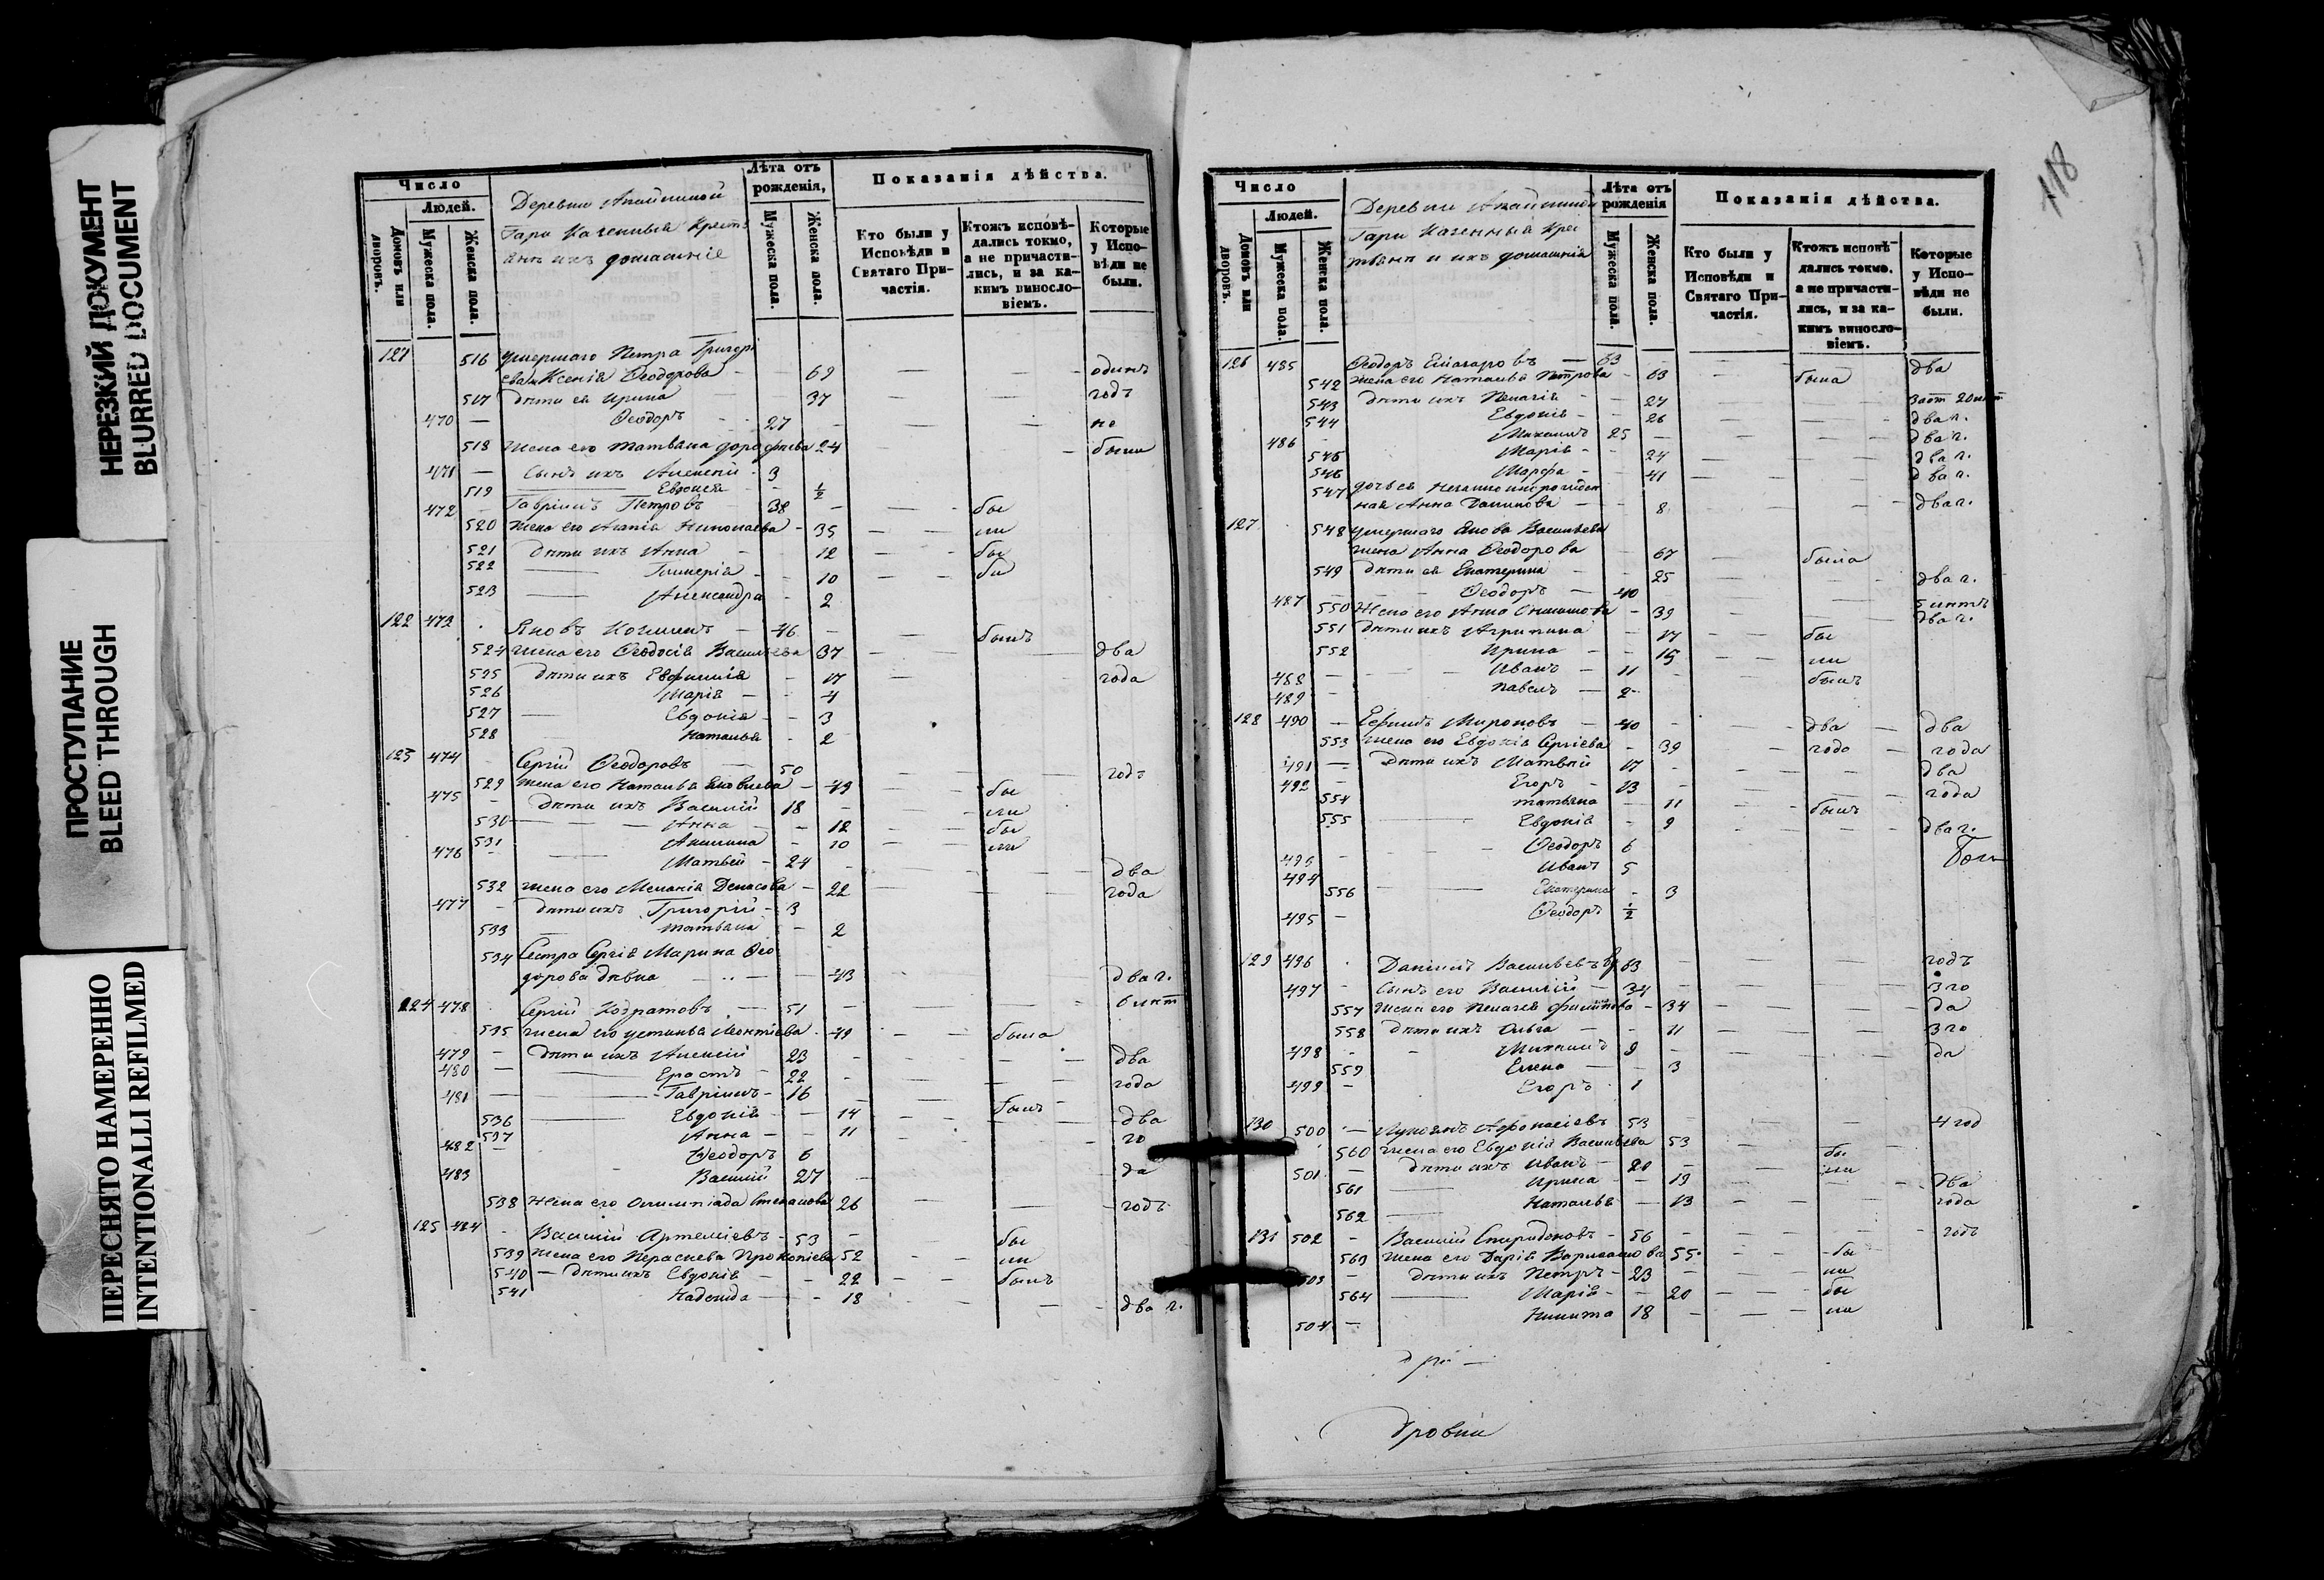 НЕРЕЗКИЙ ДОКУМЕНТ
BLURRED DOCUMENT
ПРОСТУПАНИЕ
BLEED THROUGH
ПЕРЕСНЯТО НАМЕРЕННО
INTENTIONALLI REFILMED
Число
Людей.
Домовъ или дворовъ.
Мужеска пола.
Женска пола.
Деревни
Гари Казенныя Крестья
ане ихъ домашніе
Лѣта отъ рожденія,
Мужеска пола.
Женска пола.
Показанія дѣйства.
Кто были у Исповѣди и Святаго Причастія.
Ктожъ исповѣдались токмо, а не причастились, и за какимъ винословіемъ.
Которые у Исповѣди не были.
121 516 умершаго Петра Григорь
ева Ксенія Ѳеодорова 69 одинъ
517 дѣти ея Ирина 37 годъ
470 Ѳеодоръ 27 не
518 жена его Татьяна Дорофѣева 24 были
471 сынъ ихъ Алексѣй 3
519 Евдокія ½
472 Гавріилъ Петровъ 38 бы
520 жена его Агапія Николаева 35 ли
521 дѣти ихъ Анна 12 бы
522 Гликерія 10
523 Александра 2
122 473 Яковъ 46 былъ
524 жена его Ѳеодосія Васильева 37 два
525 дѣти ихъ Евфимія 17 года
526 Марія 4
527 Евдокія 3
528 Наталья 2
123 474 Сергій Ѳеодоровъ 50 годъ
529 жена его Наталья Яковлева 49 бы
475 дѣти ихъ Василій 18 ли
530 Анна 12 бы
531 Акилина 10 ли
476 Матвей 24 два
532 жена его Меланія Денисова 22 года
477 дѣти ихъ Григорій 3
533 Татьяна 2
534 Сестра Сергія Марина Ѳео
дорова дѣвка 43 два г.
124 478 Сергій Кодратовъ 51
535 жена его Устинья Леонтіева 49 была
479 дѣти ихъ Алексій 23 два
480 Ерастъ 22 года
481 Гавріилъ 16 былъ
536 Евдокія 14 два
537 Анна 11 го
482 Ѳеодоръ 6
483 Василій 27 да
538 Жена его Олимпіада Степанова 26 годъ
125 484 Василій Артеміевъ 53 бы
539 жена его Параскева Прокопіева 52 ли
540 дѣти ихъ Евдокія 22 былъ
541 Надежда 18 два г.
118
Число
Людей.
Домовъ или дворовъ.
Мужеска пола.
Женска пола.
Деревни
Гари Казенныя Крес
тьяне и ихъ домашнія
Лѣта отъ рожденія
Мужеска пола.
Женска пола.
Показанія дѣйства.
Кто были у Исповѣди и Святаго Причастія.
Ктожъ исповѣдались токмо, а не причастились, и за какимъ винословіемъ.
Которые у Исповѣди не были.
126 485 Ѳеодоръ 63 два
542 жена его Наталья Петрова 63 была
543 дѣти ихъ Пелагія 27
544 Евдокія 26 два г.
486 Михаилъ 25 два г.
545 Марія 24 два г.
546 Марфа 41 два г.
547 дочь ея незаконнорожден
ная Анна Данилова 8 два г.
127 548 умершаго Якова Васильева
жена Анна Ѳеодорова 67 была
549 дѣти ея Екатерина 25 два г.
487 Ѳеодоръ 40 5 лѣтъ
550 Жена его Анна 39 два г.
551 дѣти ихъ Агрипина 17 бы
552 Ирина 15 ли
488 Иванъ 11 былъ
489 Павелъ 2
128 490 Ефимъ Мироновъ 40 два два
553 жена его Евдокія Сергіева 39 года года
491 Дѣти ихъ Матвѣй 17 два
492 Егоръ 13 года
554 Татьяна 11 былъ
555 Евдокія 9 два г.
493 Ѳеодоръ 6
494 Иванъ 5
556 Екатерина 3
495 Ѳеодоръ ½
129 496 Даніилъ Васильевъ 63 годъ
497 Сынъ его Василій 34 3 го
557 жена его Пелагея Филипова 34 да
558 дѣти ихъ Ольга 11 3 го
498 Михаилъ 9 да
559 Елена 3
499 Егоръ 1
130 500 Лукіянъ Афонасіевъ 53 4 год
560 жена его Евдокія Васильева 53 бы
501 дѣти ихъ Иванъ 20 ли
561 Ирина 19 два
562 Наталья 13 года
131 502 Василій Спиридоновъ 56 годъ
563 жена его Дарія Варламова 55 бы
503 дѣти ихъ Петръ 23 ли
564 Марія 20 бы
504 Никита 18 ли